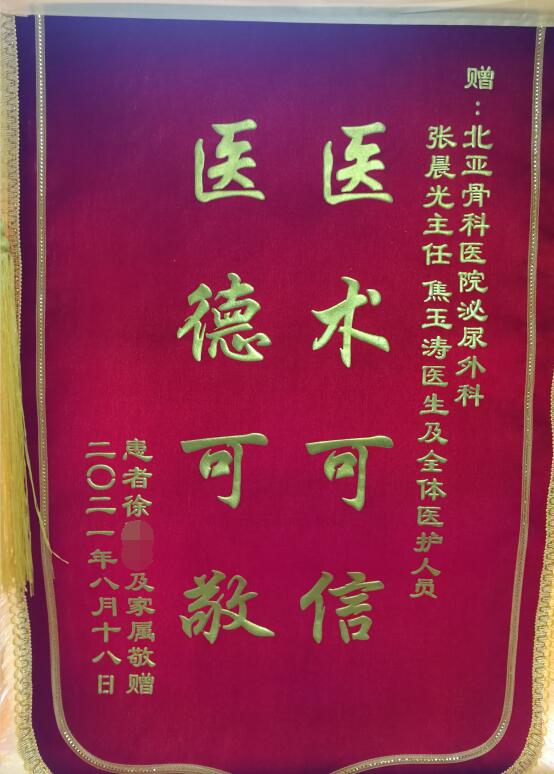 赠：北亚骨科医院泌尿外科
张晨光主任 焦玉涛医生及全体医护人员
医术可信
医德可敬
患者徐 及家属敬赠
二〇二一年八月十八日